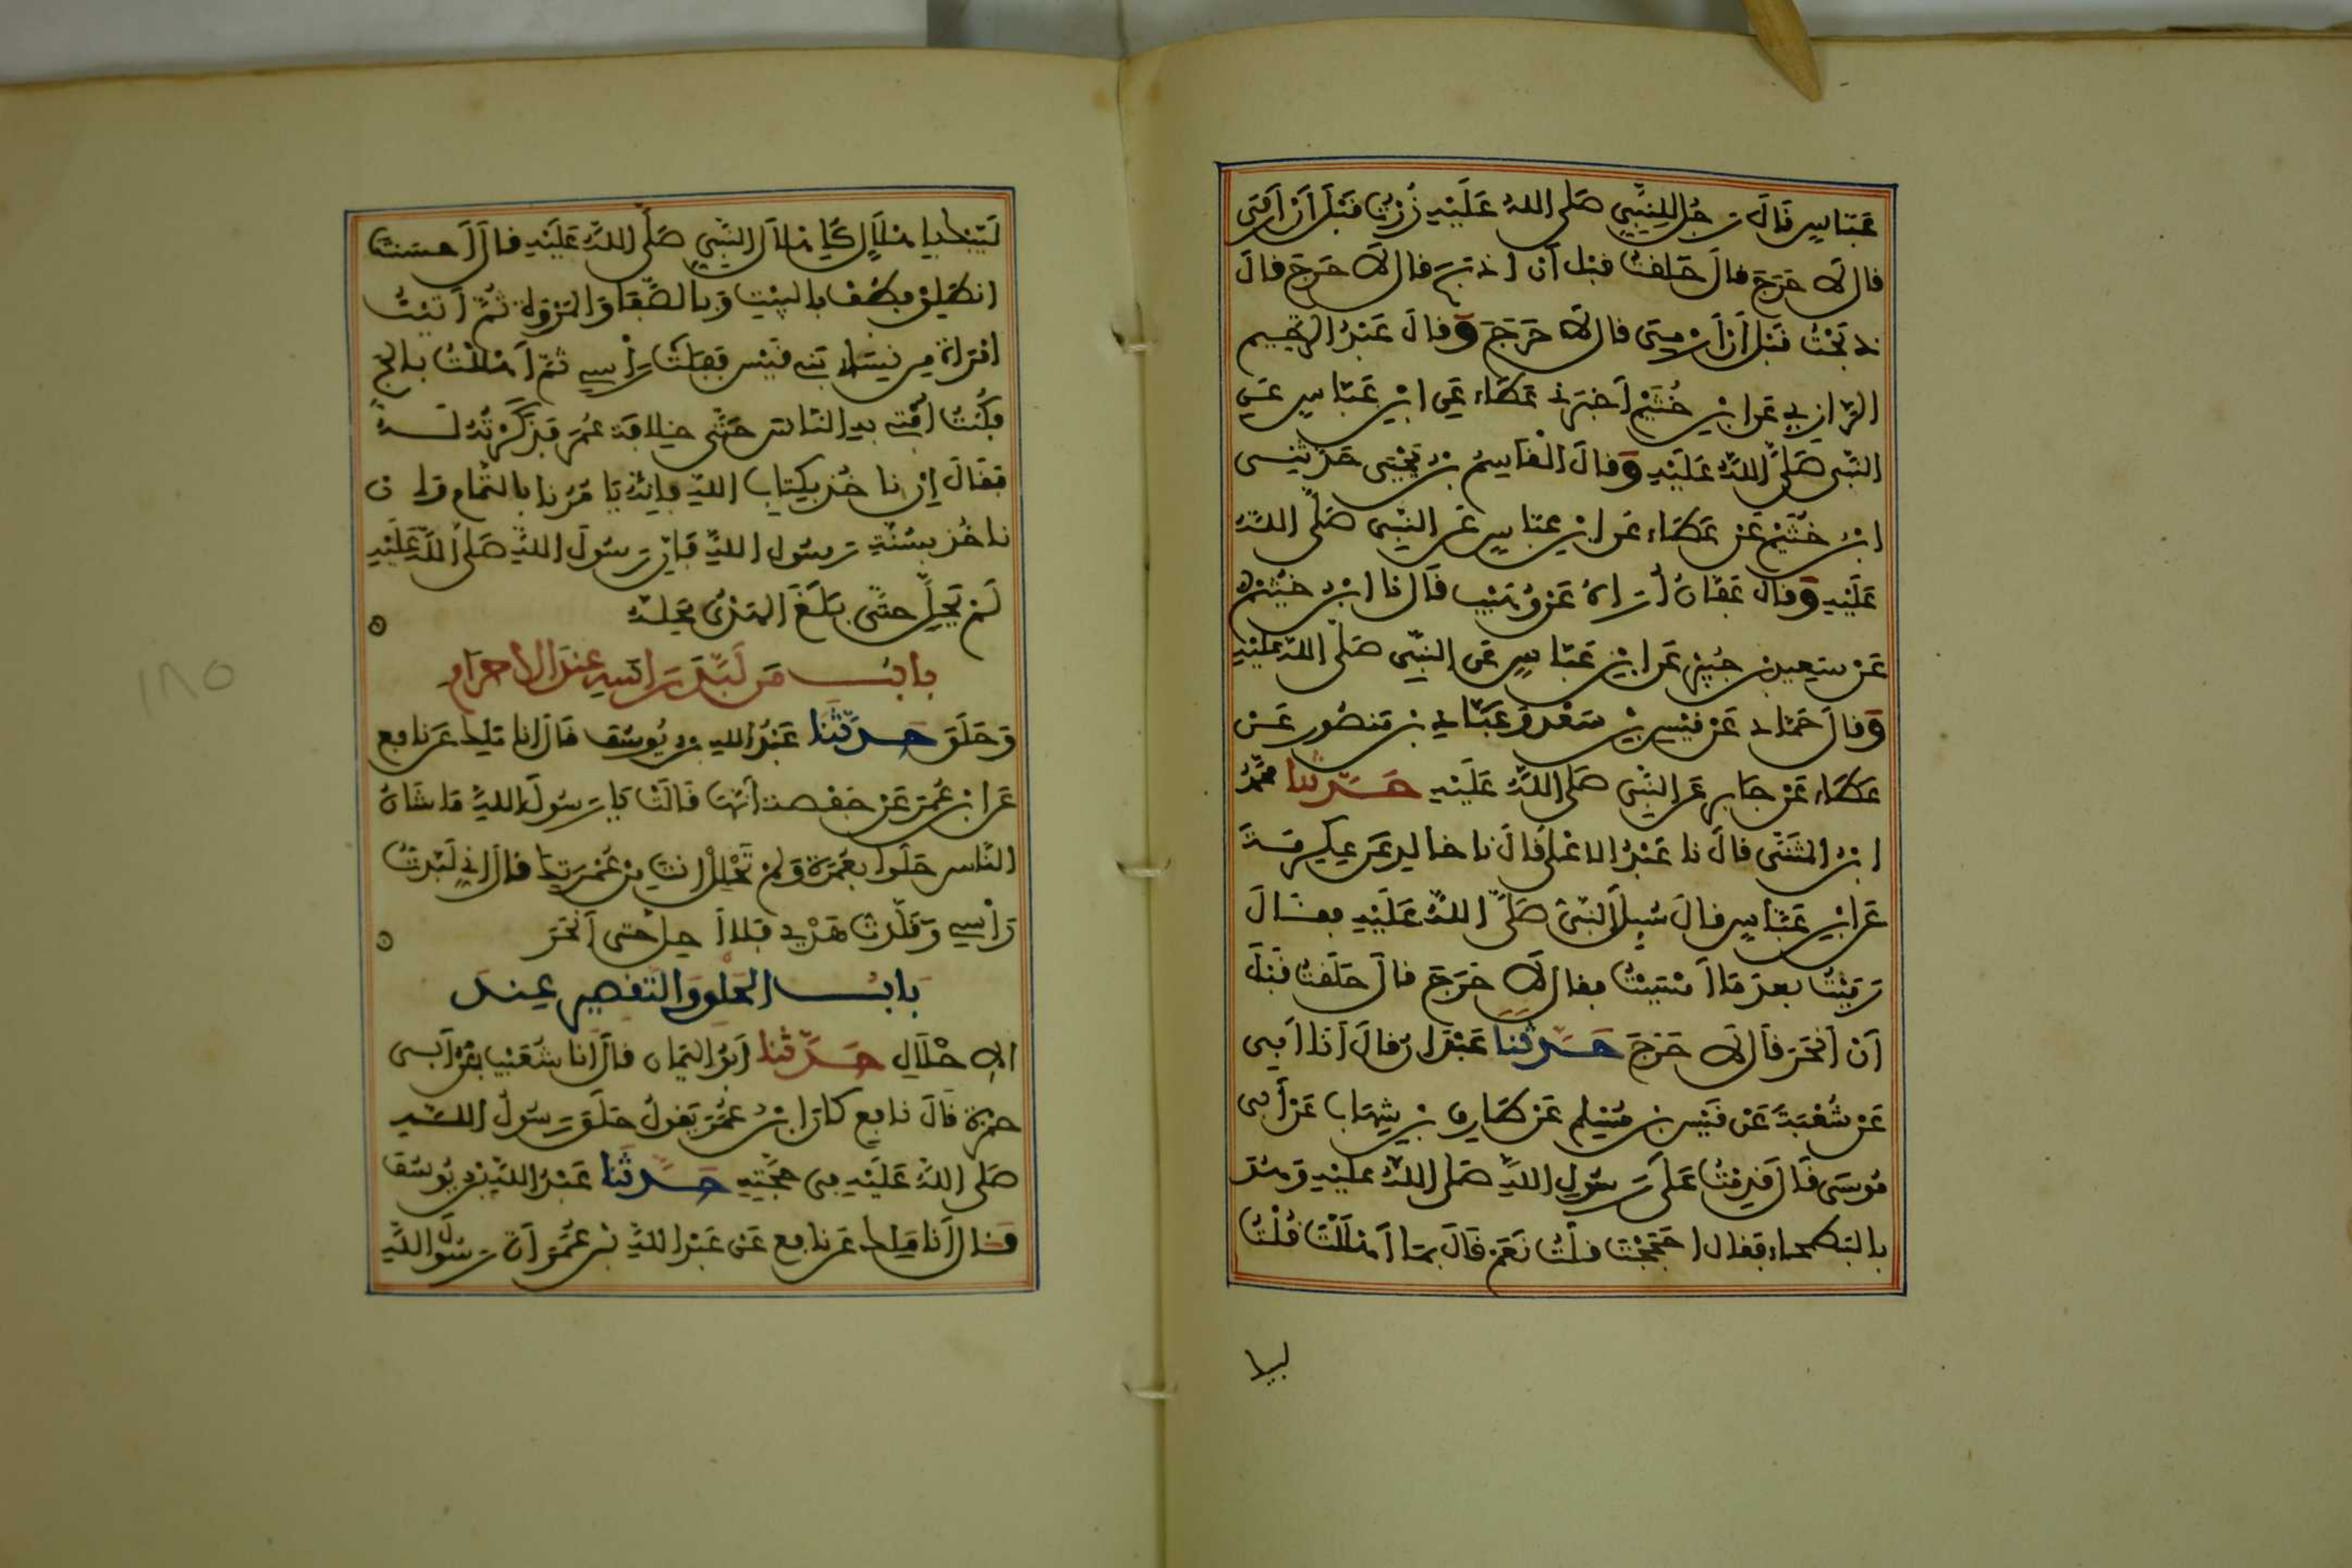 عَبَّاسٍ قَالَ رَجُلٌ لِلنَّبِيِّ صَلَّى اللهُ عَلَيْهِ زُرْتُ قَبْلَ أَنْ أَرْمِيَ
قال لَا حَرَجَ قالَ حَلَقْتُ قبْل أَن اذبَحَ قال لَا حَرَجَ قالَ
ذَبَحْتُ قَبْلَ أَنْ أَرْمِيَ قال لَا حَرَجَ وَقالَ عَبْدُ الرَّحِيمِ
الرَّازِي عَنِ ابْنِ خُثَيْمٍ أَخْبَرَنِي عَطَاء عَنِ ابْنِ عَبَّاسٍ عَنِ
النَّبِيِّ صَلَّى اللهُ عَلَيْهِ وَقالَ الْقَاسِمُ بْنُ يَحْيَى حَدَّثَنِي
ابْنُ خُثَيْمٍ عَنْ عَطَاء عَنِ ابْنِ عَبَّاسٍ عَنِ النَّبِيِّ صَلَّى اللهُ
عَلَيْهِ وَقالَ عَفَّانُ أُرَاهُ عَنْ وُهَيْبٍ قَالَ نا ابْنُ خُثَيْمٍ
عَنْ سَعِيدِ بْنِ جُبَيْرٍ عَنِ ابْنِ عَبَّاسٍ عَنِ النَّبِيِّ صَلَّى اللهُ عَلَيْهِ
وَقالَ حَمَّادٌ عَنْ قَيْسِ بْنِ سَعْدٍ وَعَبَّادِ بْنِ مَنْصُورٍ عَنْ
عَطَاء عَنْ جَابِرٍ عَنِ النَّبِيِّ صَلَّى اللهُ عَلَيْهِ حَدَّثَنَا مُحَمَّدُ
ابْنُ الْمُثَنَّى قالَ نا عَبْدُ الاعْلَى قَالَ نا خالِد عَنْ عِكْرِمَةَ
عَنِ ابْنِ عَبَّاسٍ قالَ سُئِلَ النَّبِيُّ صَلَّى اللهُ عَلَيْهِ فقالَ
رَمَيْتُ بعدَ مَا أَمْسَيْتُ فقال لَا حَرَجَ قالَ حَلَقْتُ قَبْلَ
أَنْ أَنْحَرَ قَال لَا حَرَجَ حَدَّثَنَا عَبْدَانُ قالَ أَنَا أَبِي
عَنْ شُعْبَةَ عَنْ قَيْسِ بْنِ مُسْلِمٍ عَنْ طَارِقِ بْنِ شِهَابٍ عَنْ أَبِي
مُوسَى قَالَ قَدِمْتُ عَلَى رَسُولِ اللهِ صَلَّى اللهُ عَلَيْهِ وَهُوَ
بالبَطْحاء فَقال احَجَجْتَ قلْتُ نَعَمْ قَالَ بِمَا أَهْلَلْتَ قُلْتُ
لبيـ
لَبَّيْكَ باهْلَالٍ كَإِهْلَالِ النَّبِيِّ صَلَّى اللهُ عَلَيْهِ قالَ أَحسَنْتَ
انطَلِقْ فطُفْ بالبيْتِ وَبالصَّفَا وَالمَرْوَةِ ثُمَّ أَتَيْتُ
امْرَأَةً مِن نِسَاءِ بَنِي قَيْسٍ فَفَلَتْ رَأْسِي ثمَّ أَهْلَلْتُ بالحج
فكُنْتُ أُفْتِي بِهِ النَّاسَ حَتَّى خِلَافَةِ عُمَرَ فَذَكَرْتُهُ لَهُ
فَقَالَ إِنْ ناخُذْ بِكِتَابِ اللهِ فإِنَّهُ يَامُرُنا بالتَّمَامِ وَان
ناخُذْ بِسُنَّةِ رَسُولِ اللهِ فَإِنَّ رَسُولَ اللهِ صَلَّى اللهُ عَلَيْهِ
لَمْ يَحِلَّ حتَّى بَلَغَ الهَدْيُ مَحِلَّهُ
بابُ مَن لَبَّدَ رَاسَهُ عِنْدَ الاحرَامِ
وَحَلَقَ حَدَّثَنَا عَبْدُ اللهِ بْنُ يُوسُفَ قَالَ انا مَلِك عَن نافِع
عَنِ ابْنِ عُمَرَ عَنْ حَفْصَةَ أَنَّهَا قَالَتْ يَا رَسُولَ اللهِ مَا شَانُ
النَّاسِ حَلُّوا بِعُمْرَةٍ وَلَمْ تَحْلِلْ انْتَ مِنْ عُمْرَتِكَ قالَ انِّي لَبَّدتُ
رَأْسِي وَقَلَّدتُ هَدْيِي فَلا أَحِلُّ حتى أَنْحَرَ
بابُ الحَلْقِ وَالتَّقْصِيرِ عِندَ
الإحْلَالِ حَدَّثَنَا أَبُو اليَمَان قالَ أَنا شُعَيْبُ بنُ أَبِي
حمزة قَالَ نافِع كانَ ابْنُ عُمَرَ يَقُولُ حَلَقَ رَسُولُ اللهِ
صَلَّى اللهُ عَلَيْهِ فِي حَجَّتِهِ حَدَّثَنَا عَبْدُ اللهِ بْنُ يُوسُفَ
قَالَ أَنَا مَلِك عَن نافِع عَنْ عَبْدِ اللهِ بْنِ عُمَرَ أَنَّ رَسُولَ اللهِ
١٨٥